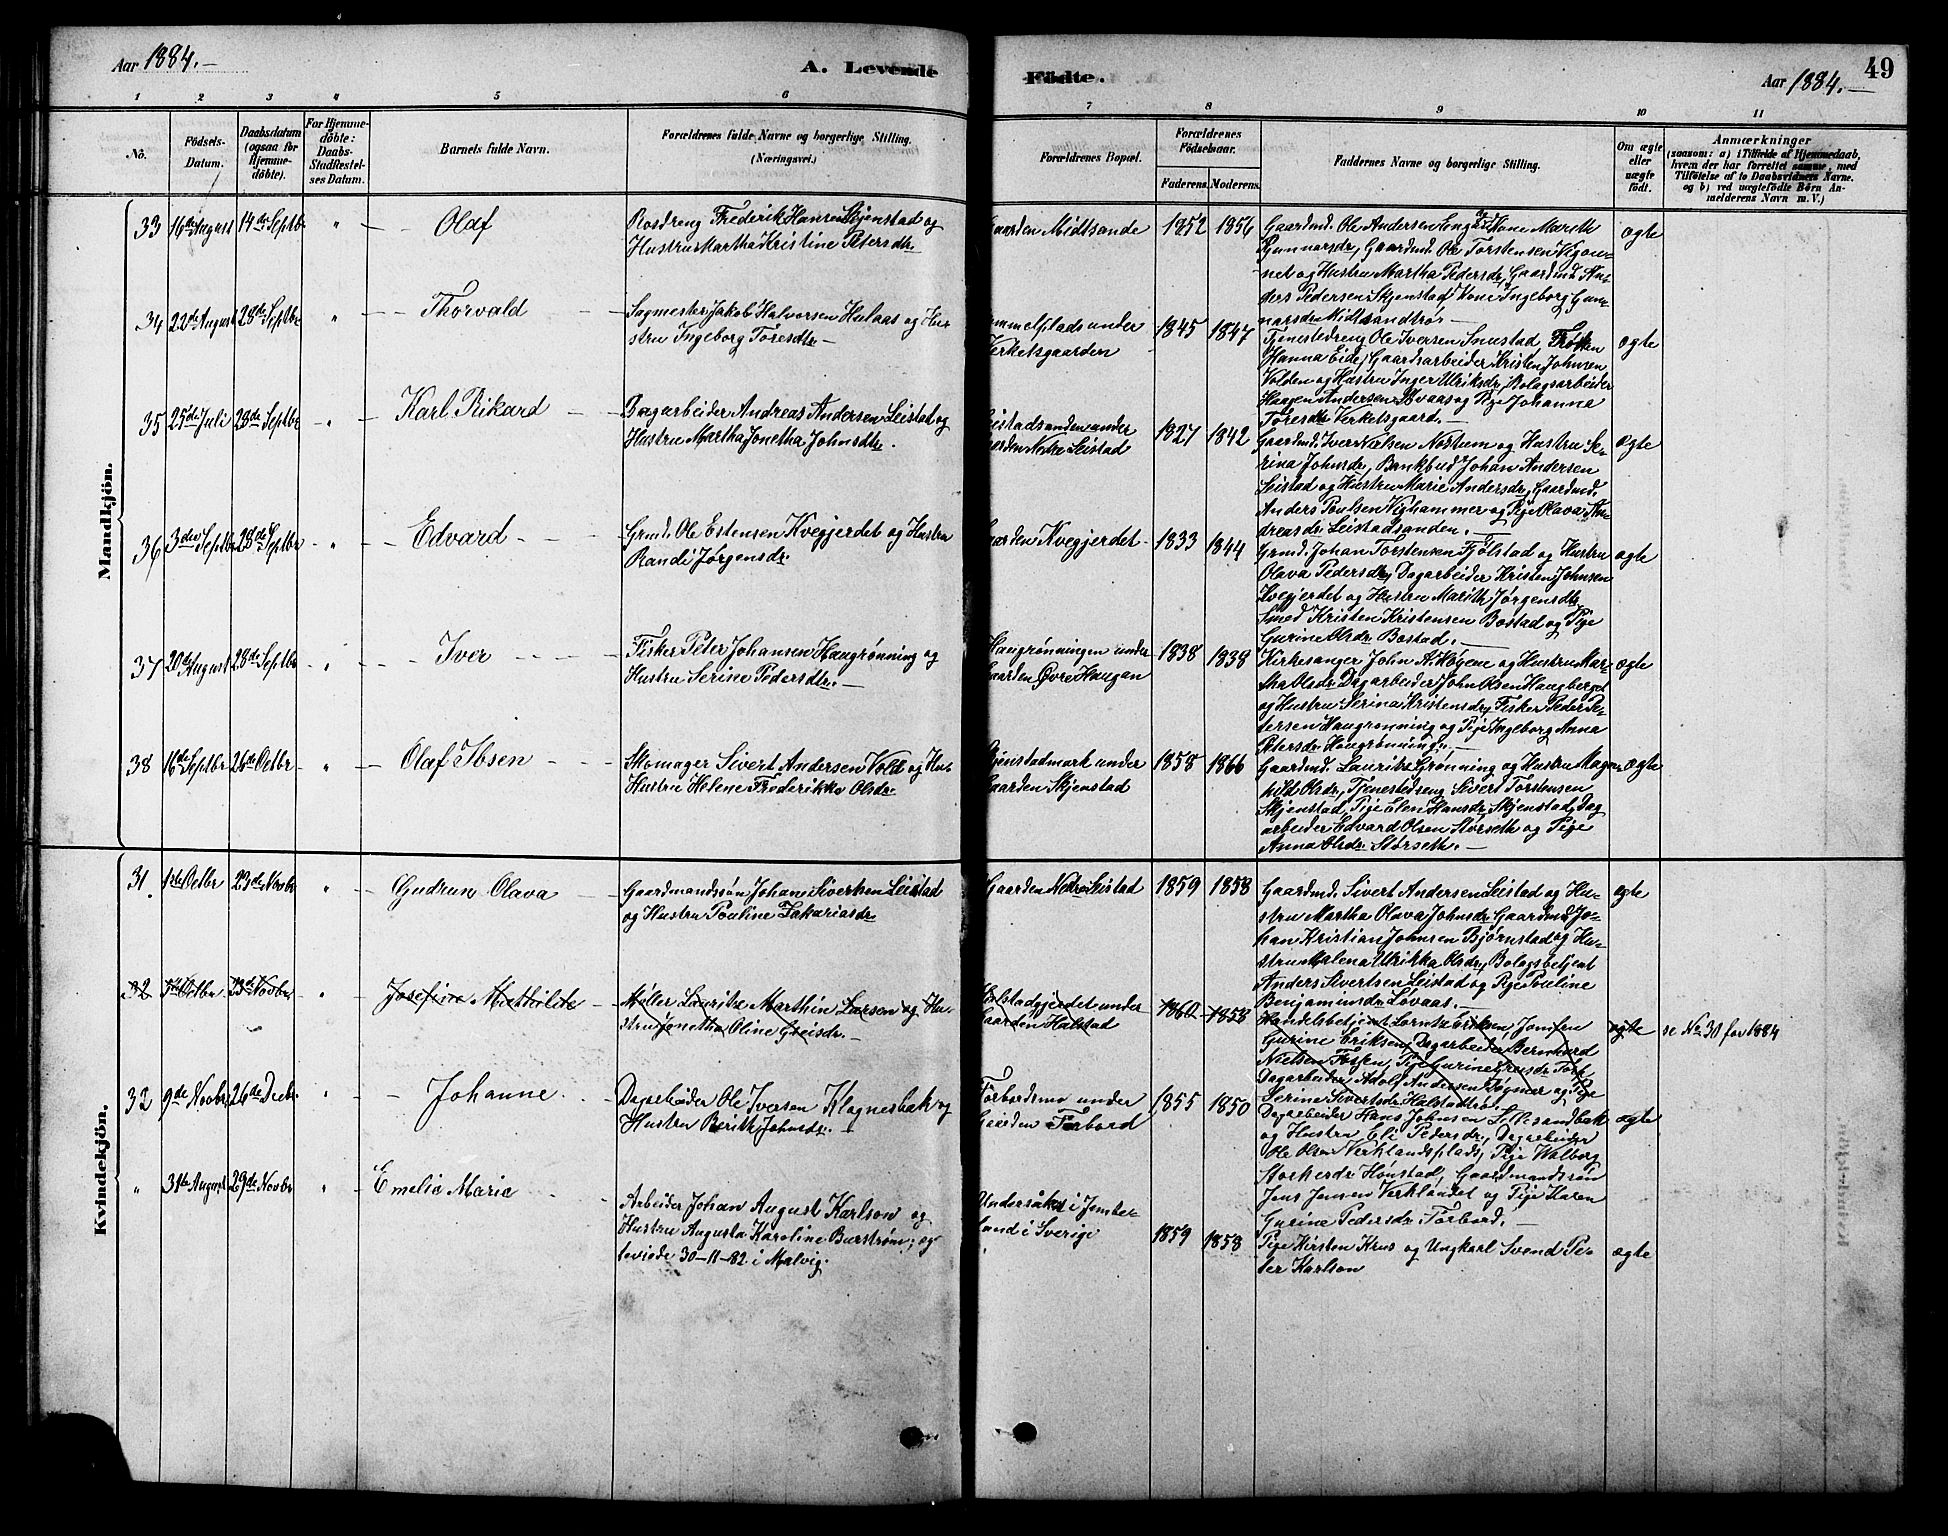 Aar 1884.—
A. Levende
Födte.
Aar 1884.—
49
1 2 3 4 5 6 7 8 9 10 11
No.
Födsels-
Datum.
Daabsdatum
(ogsaa for
Hjemme-
döbte).
For Hjemme-
döbte:
Daabs-
Stadfestel-
ses Datum.
Barnets fulde Navn.
Forældrenes fulde Navne og borgerlige Stilling.
(Næringsvei.)
Forældrenes Bopæl.
Forældrenes
Födselsaar.
Faderens. Moderens.
Faddernes Navne og borgerlige Stilling.
Om ægte
eller
uægte
födt.
Anmærkninger
(saasom: a) i Tilfælde af Hjemmedaab,
hvem der har forrettet samme, med
Tilföielse af to Daabsvidners Navne.
og b) ved uægtefödte Börn An-
melderens Navn m. V.)
Mandkjön.
33 16de August 14de Septbr " Olaf
Rosdreng Frederik Hansen Skjenstad og
Hustru Martha Kristine Petersdtr
Gaarden Midtsande 1852 1856
Gaardmd. Ole Andersen og Kone Marith
Gunnarsdr, Gaardmd. Ole Torstensen
og Hustru Martha Pedersdr, Gaardmd. An-
ders Pedersen Skjenstad, Kone Ingeborg Gun-
narsdr Midtsandtrø.—
ægte
34 22de August 28de Septbr " Thorvald
Sagmester Jakob Halvorsen Hulaas og Hu-
stru Ingeborg Toresdtr—
Hammelplads under
Verketsgaarden
1845 1847
Tjenestedreng Ole Iversen Snustad Frøken
Hanna Eide, Gaardsarbeider Kristen Johnsen
Volden og Hustru Inger Ulriksdr, Bolagsarbeider
Haagen Andersen og Pige Johanna
Toresdtr Verketsgaard.—
ægte
35 25de Juli 28de Septbr " Karl Rikard
Dagarbeider Andreas Andersen Leistad og
Hustru Martha Jonetha Johnsdtr.
Leistadsanden under
Gaarden Nedre Leistad
1827 1842
Gaardmd. Iver Nielsen Nostum og Hustru Se-
rina Johnsdr, Bankbud Johan Andersen
Leistad og Hustru Marie Andersdr, Gaardmd.
Anders Poulsen Vighammer og Pige Olava An-
dreasdr Leistadsanden.—
ægte
36 3den Septbr 28de Septbr " Edvard
Grmd. Ole Estensen Kvegjerdet og Hustru
Randi Jørgensdr.
Gaarden Kvegjerdet 1833 1844
Grmd. Johan Torstensen Fjölstad og Hustru
Olava Pedersdtr, Dagarbeider Kristen Johnsen
Kvegjerdet og Hustru Marith Jørgensdtr,
Smed Kristen Kristensen Bostad og Pige
Gurine Olsdr Bostad.—
ægte
37 20de August 28de Septbr " Iver
Fisker Peter Johansen Haugrønning og
Hustru Serine Pedersdtr.—
Haugrønningen under
Gaarden Øvre Haugan
1838 1838
Kirkesanger John A. Høyene og Hustru Mar-
tha Olsdr, Dagarbeider John Olsen Haugberget
og Hustru Serina Kristensdr, Fisker Peder Pe-
tersen Haugrønning og Pige Ingeborg Anna
Petersdr Haugrønning.—
ægte
38 16de Septbr 26de Octbr " Olaf Ibsen
Skomager Sivert Andersen Vold og Hus-
Hustru Helene Frederikke Olsdr.
Skjenstadmark under
Gaarden Skjenstad
1858 1866
Gaardmd. Laurits Grønning og Hustru Magn-
hild Olsdr, Tjenestedreng Sivert Torstensen
Skjenstad, Pige Elen Hansdr Skjenstad, Dag
arbeider Edvard Olsen Størseth og Pige
Anna Olsdr Størseth.—
ægte
Kvindekjön.
31. 1ste Octbr 23de Novbr " Gudrun Olava
Gaardmandssøn Johan Sivertsen Leistad
og Hustru Pouline Zakariasdr.
Gaarden Nedre Leistad 1859 1858
Gaardmd. Sivert Andersen Leistad og Hu-
stru Martha Olava Johnsdr, Gaardmd Jo-
han Kristian Johnsen Bjørnstad og Hu-
stru Malena Ulrikka Olsdr, Bolagsbetjent
Anders Sivertsen Leistad og Pige Pouline
Benjaminsdr Løvaas.—
ægte
32 5te Octbr 23de Novbr " Josefine Mathilde
Møller Lauritz Marthin Larsen og Hu-
stru Jonetha Oline Greisdr.—
Halstadgjerdet under
Gaarden Halstad
1860 1858
Handelsbetjent Lorntz Eriksen, Jomfru
Gurine Eriksen, Dagarbeider Bernhard
Nielsen, Pige Gurine Greisdr
Dagarbeider Adolf Andersen og Pige
Serine Sivertsdr Halstadtrø.
ægte
se No 30 for 1884
32 9de Novbr. 26de Decbr. " Johanne
Dagarbeider Ole Iversen Klognesbak og
Hustru Berith Johnsdr.
Forbordsmo under
Gaarden Forbord
1855 1850
Dagarbeider Hans Johnsen sandbak
og Hustru Eli Pedersdr, Dagarbeider
Ole Olsen Verklandsplads, Pige Walborg
Storkersdr Hønstad, Gaardmandssøn
Jens Jensen Verklandet og Pige Karen
Gurine Pedersdr Forbord.—
ægte
" 31te August 29de Novbr " Emelie Marie
Arbeider Johan August Karlson og
Hustru Augusta Karoline Burstrøm; æg
teviede 30-11-82. i Malvig.
Undersåker i Jemte-
land i Sverige
1859 1858
Pige Kirsten Krus og Ungkarl Svend Pe-
ter Karlson
ægte